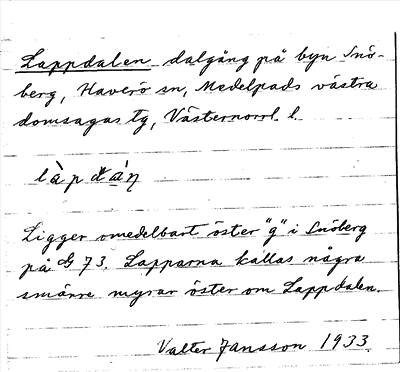 Lappdalen dalgång på byn Snö-
berg, Haverö sn, Medelpads västra
domsagas tg, Västernorrl. l.
làpdán
Ligger omedelbart öster "g" i Snöberg
på G 73. Lapparna kallas några
smärre myrar öster om Lappdalen.
Valter Jansson 1933.